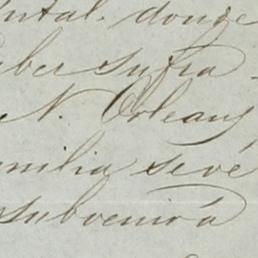 ntal. donde
aber sufra-
N. Orleans
amilia seve
subvenir á